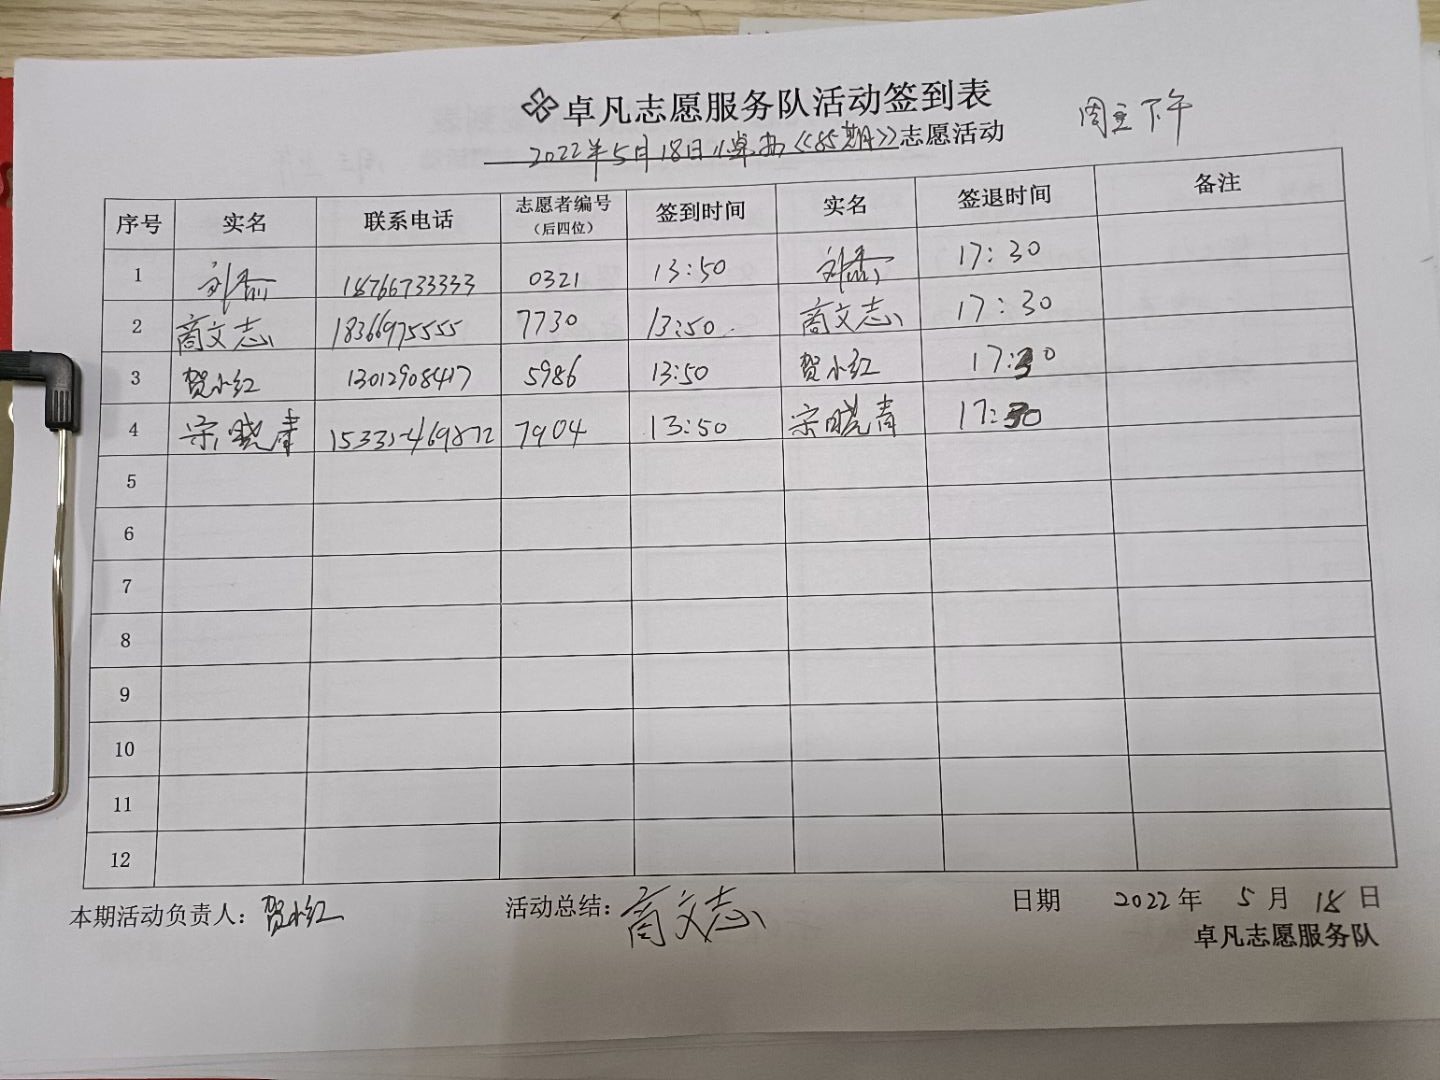 卓凡志愿服务队活动签到表
周三下午
2022年5月18日《85期》志愿活动
序号 实名 联系电话 志愿者编号（后四位） 签到时间 实名 签退时间 备注
1 18766733333 0321 13:50 17:30
2 商文志 18366975555 7730 13:50 商文志 17:30
3 贺小红 13012908417 5986 13:50 贺小红 17:30
4 宋晓青 7904 13:50 宋晓青 17:30
5
6
7
8
9
10
11
12
本期活动负责人：贺小红 活动总结：商文志 日期 2022年5月18日
卓凡志愿服务队